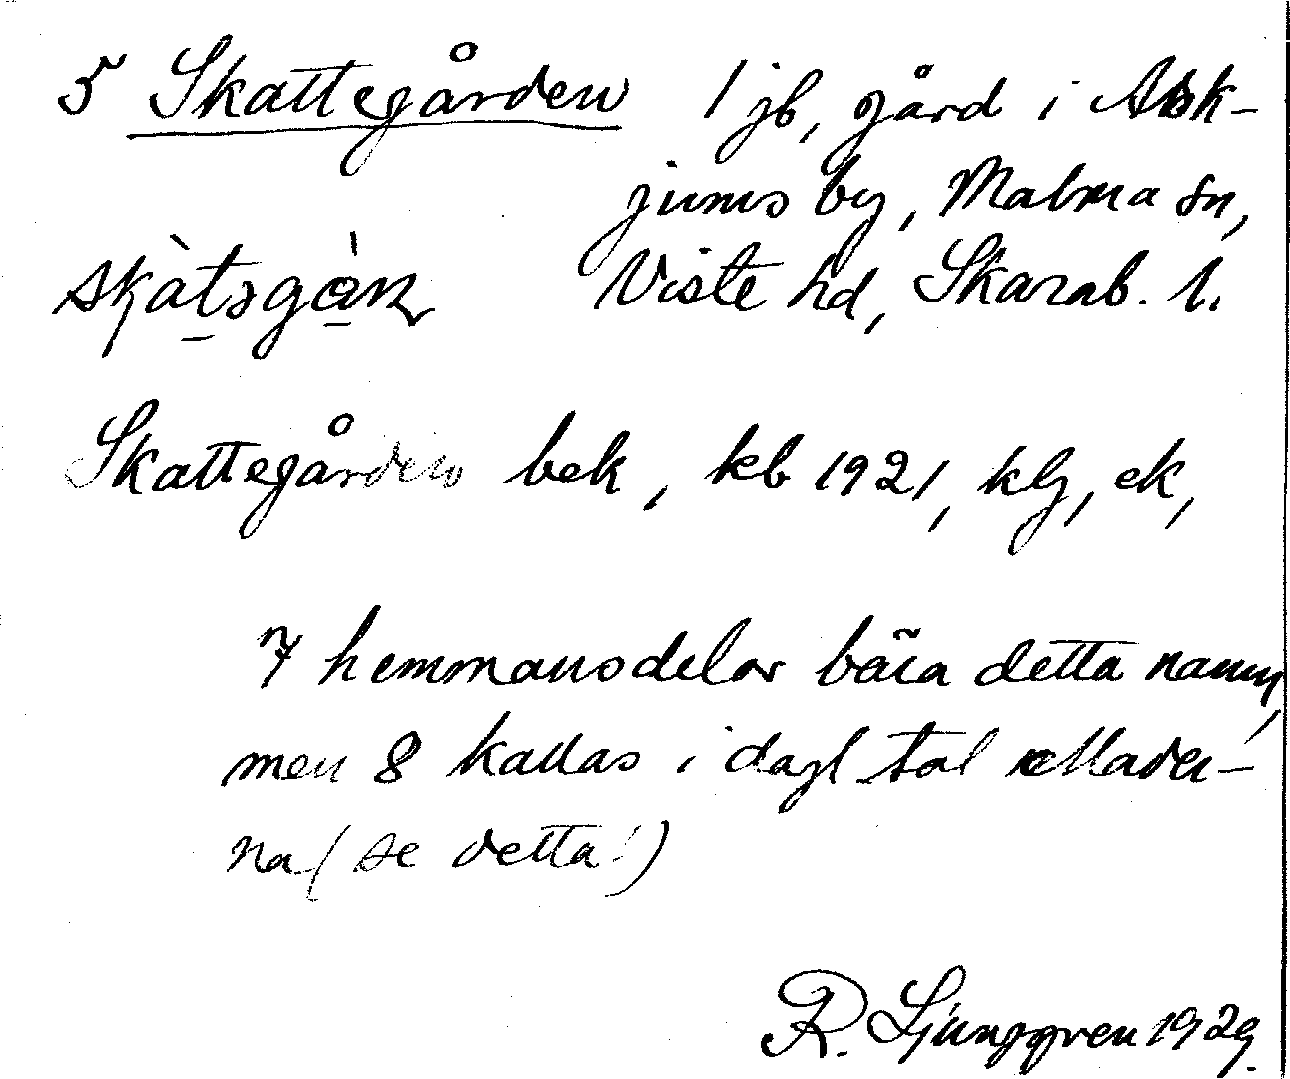 5 Skattegården 1 jb, gård i Ask-
jums by, Malma sn,
skàtsgàṉ Viste hd, Skarab. l.
Skattegården bek, kb 1921, klj, ek,
7 hemmansdelar bära detta namn,
men 8 kallas i dagl tal Mader-
na (se detta!)
R. Ljunggren 1929.